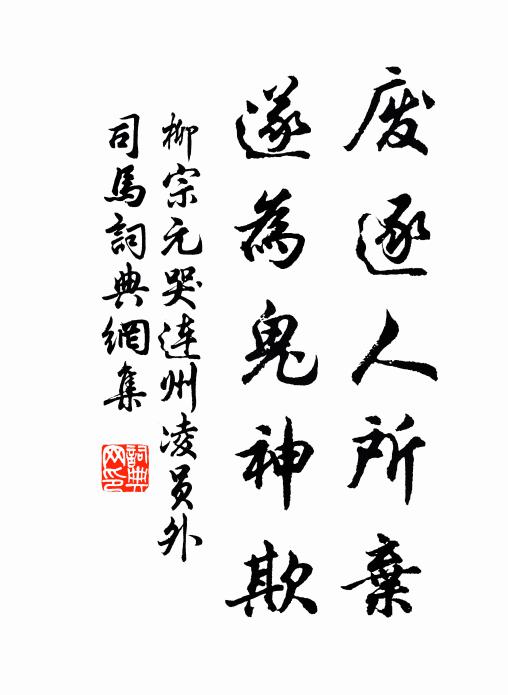 废逐人所棄
遂為鬼神欺
柳宗元哭连州凌员外
司馬詞典網集
詞典
网印